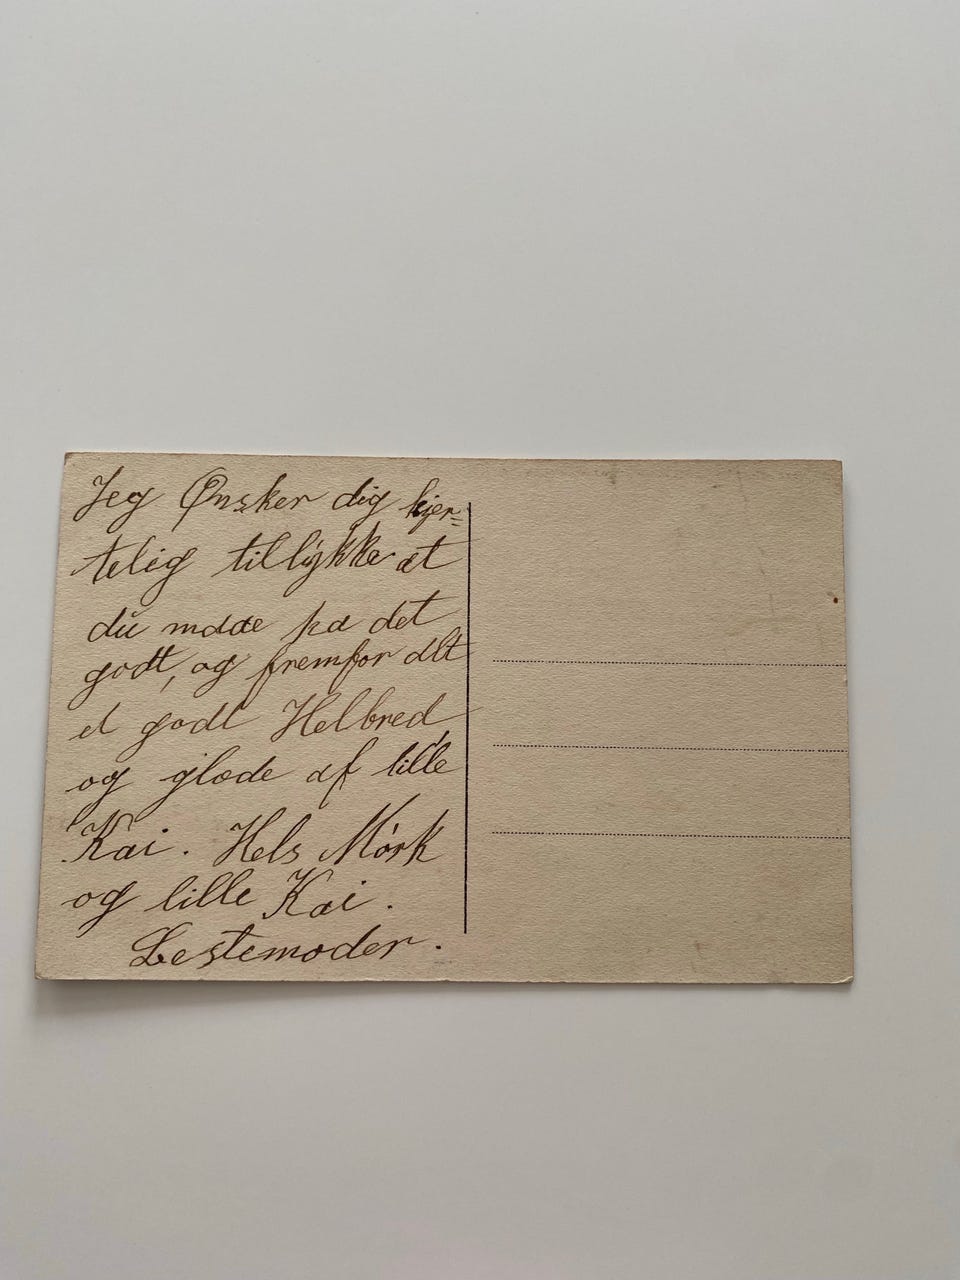 Jeg Ønsker dig hjer=
telig tillykke at
du maae ha det
godt, og fremfor alt
et godt Helbred
og glæde af lille
Kai. Hels Mørk
og lille Kai.
Bestemoder.